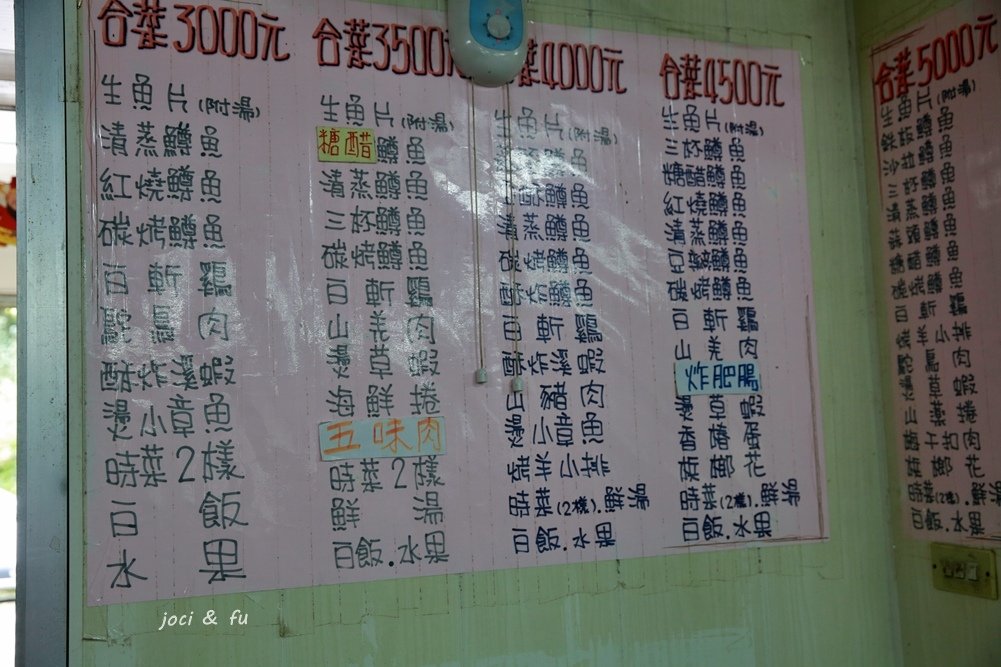 合菜3000元
生魚片(附湯)
清蒸鱒魚
紅燒鱒魚
碳烤鱒魚
白斬雞
鴕鳥肉
酥炸溪蝦
燙小章魚
時菜2樣
白飯
水果
合菜3500元
生魚片(附湯)
糖醋鱒魚
清蒸鱒魚
三杯鱒魚
碳烤鱒魚
白斬雞
山羌肉
燙草蝦
海鮮捲
五味肉
時菜2樣
鮮湯
白飯.水果
菜4000元
生魚片(附湯)
魚
鱒魚
清蒸鱒魚
碳烤鱒魚
酥炸鱒魚
白斬雞
酥炸溪蝦
山豬肉
燙小章魚
烤羊小排
時菜(2樣).鮮湯
白飯.水果
合菜4500元
生魚片(附湯)
三杯鱒魚
糖醋鱒魚
紅燒鱒魚
清蒸鱒魚
豆瓣鱒魚
碳烤鱒魚
白斬雞
山羌肉
炸肥腸
燙草蝦
香椿蛋
檳榔花
時菜(2樣).鮮湯
白飯.水果
合菜5000元
生魚片(附湯)
鐵板鱒魚
沙拉鱒魚
三杯鱒魚
清蒸鱒魚
蒜頭鱒魚
糖醋鱒魚
碳烤鱒魚
白斬雞
烤羊小排
鴕鳥肉
燙草蝦
山藥捲
梅干扣肉
檳榔花
時菜(2樣).鮮湯
白飯.水果
joci & fu